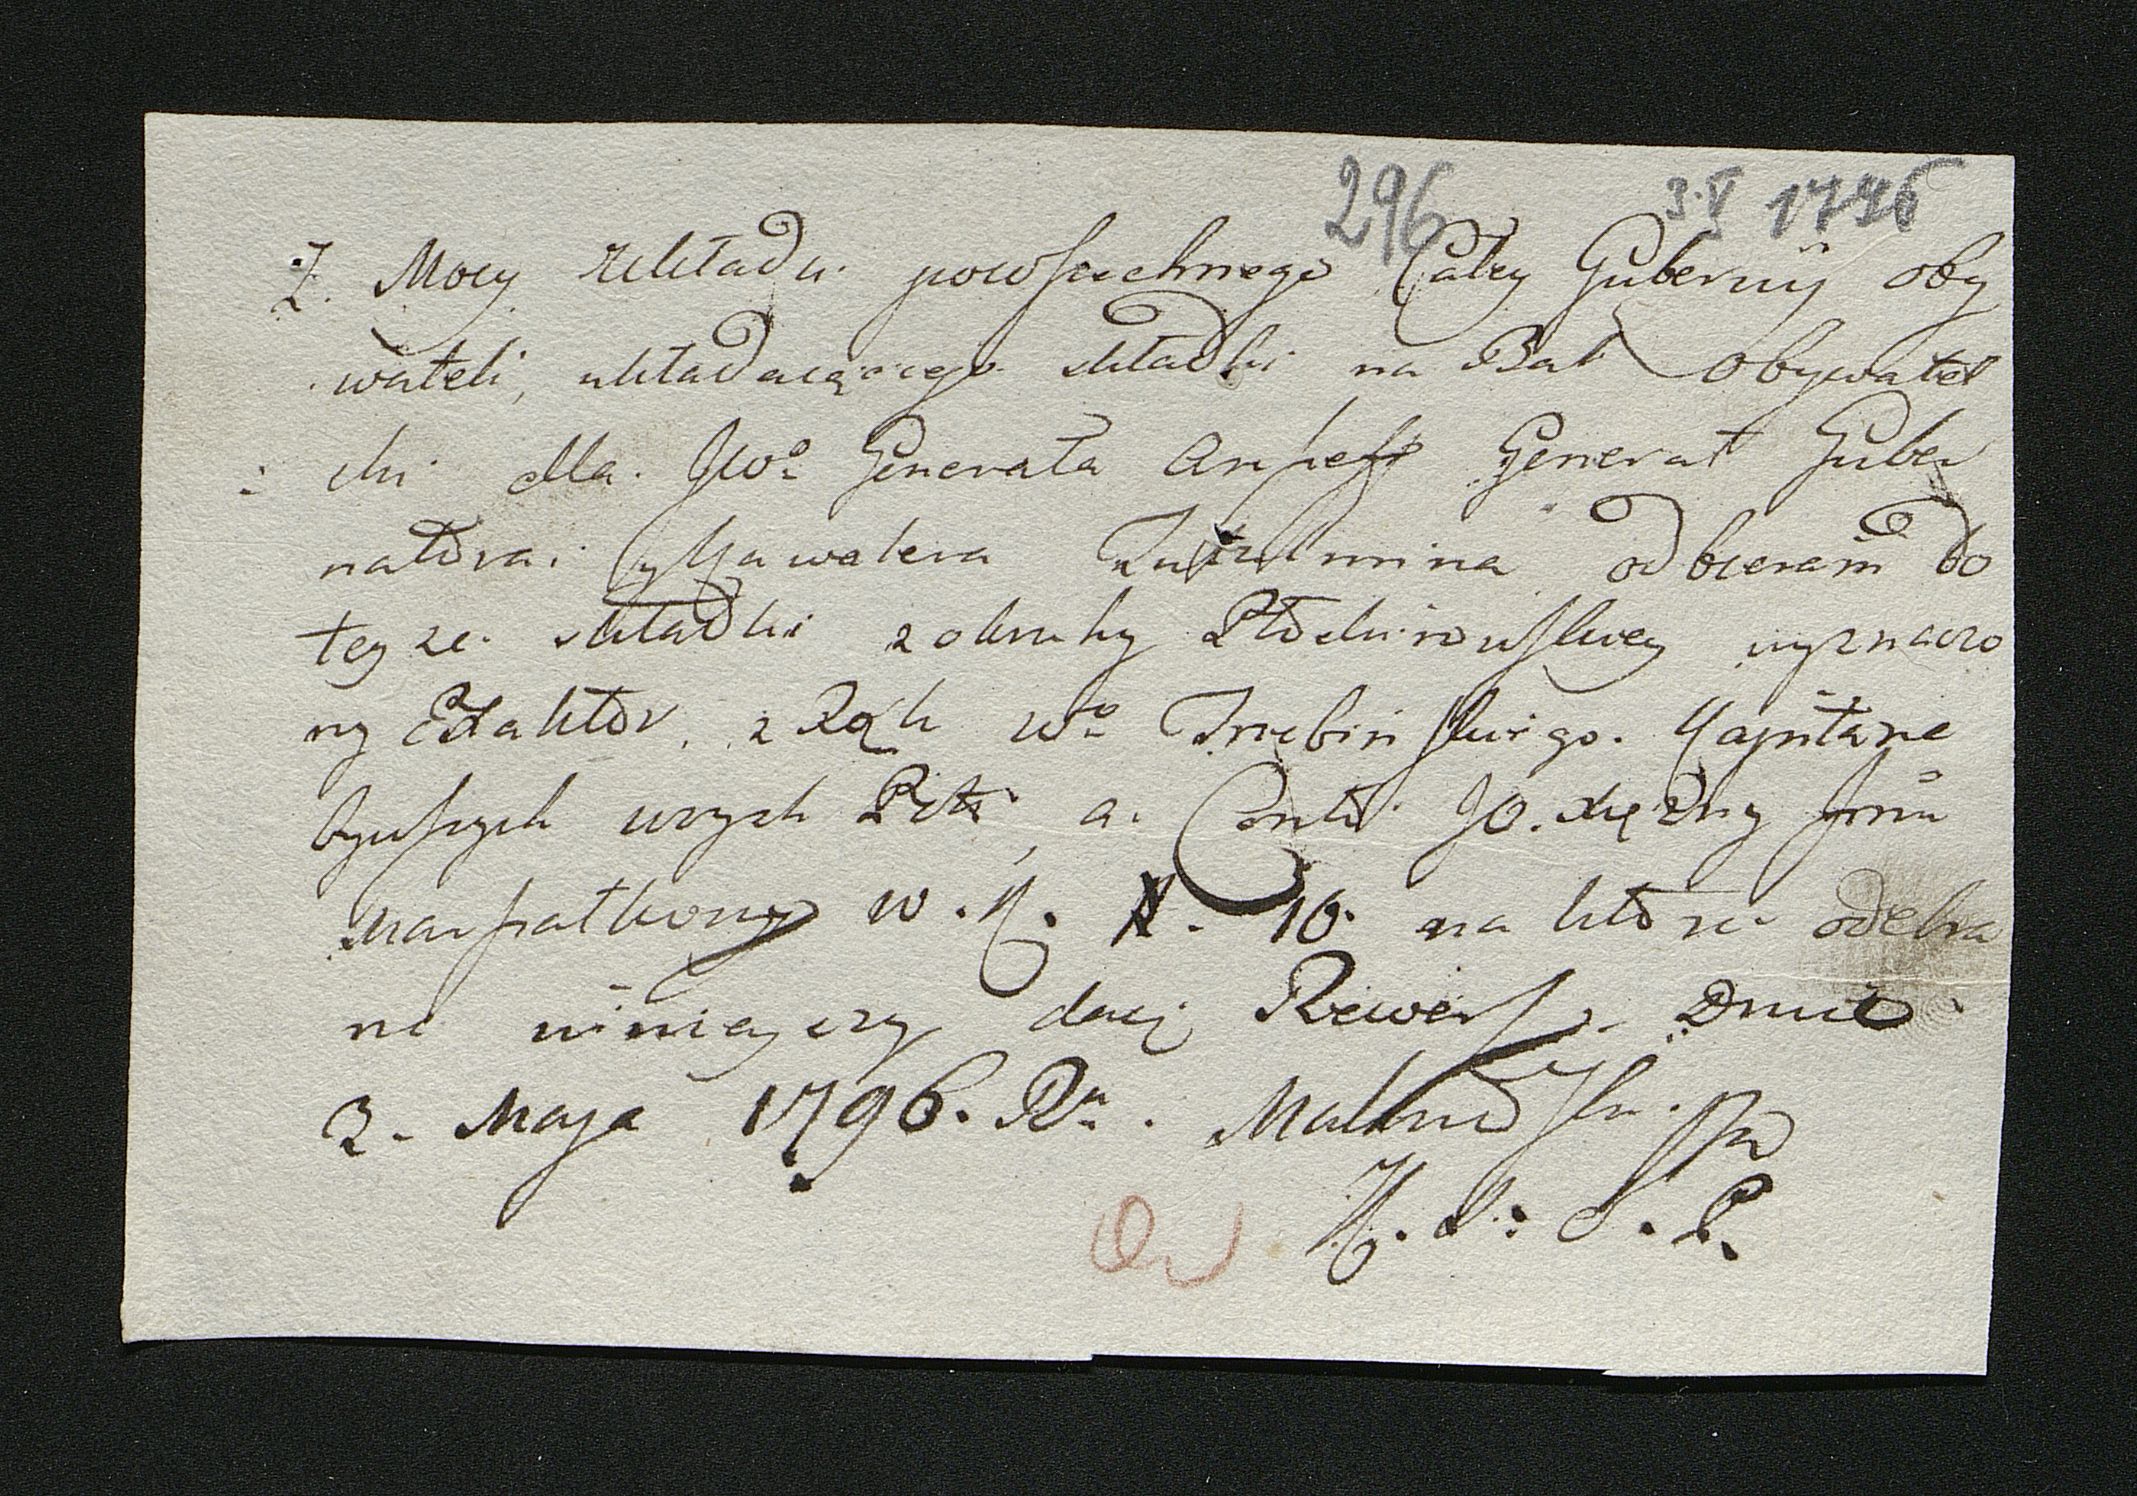 296 3.V 1796
Z. Mocy Układu powszechnego Całey Gubernij oby
wateli, układaiącego składki na Bal Obywatel
ski dla JWo Generała Anszeff Generał Guber
natora i Kawalera Tutulmina odbieram do
teyże składki z okruhy wyznaczo
ny Exaktor, z Rąk Wo Trzebińskiego Kapitana
byłszych woysk a Conto JO. Xiężny Jmci
w. K. N. 10. na które odebra
ne ninieyszy daię Rewers. Dnia
3. Maja 1796. Ru.
K. S. P.